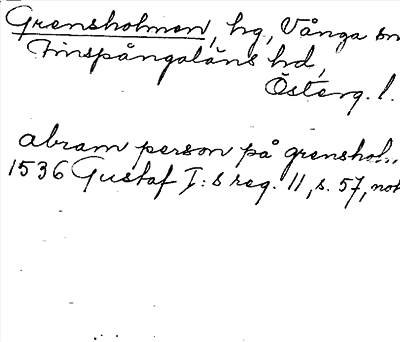 Grensholmen, hg, Vånga sn
Finspångaläns hd,
Österg. l.
abram person på grenshol..
1536 Gustaf I:s reg. 11, s. 57, not